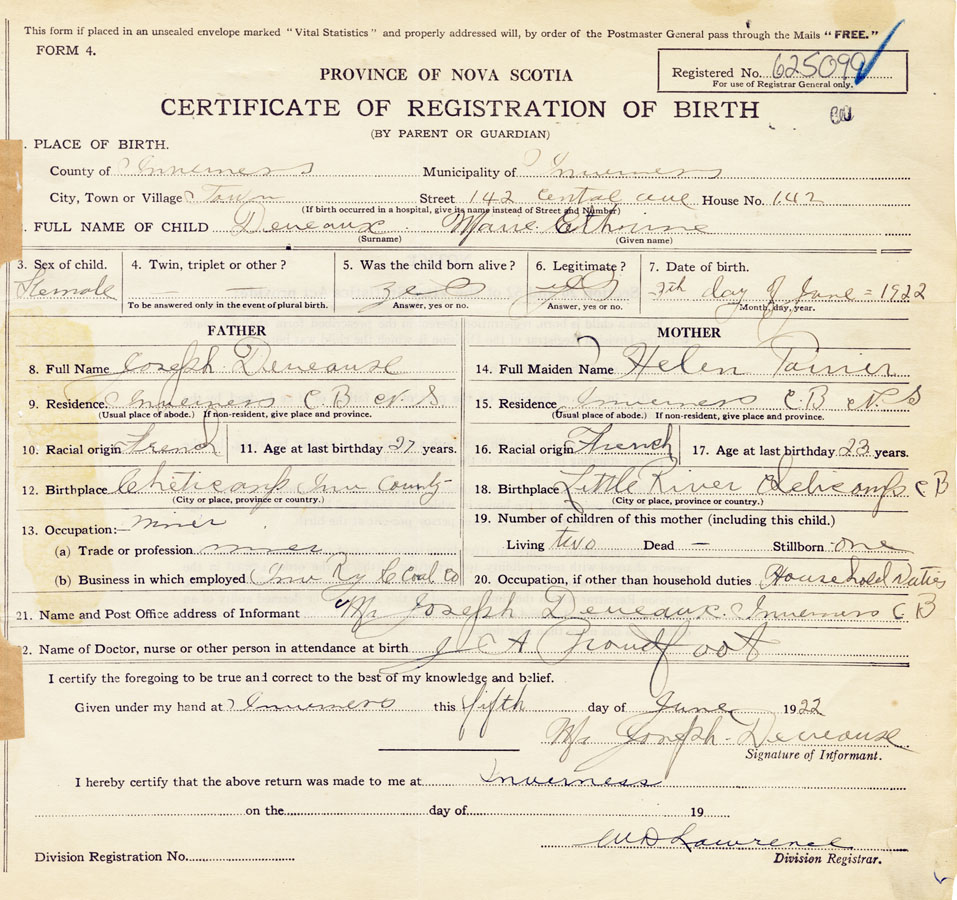 This form if placed in an unsealed envelope marked "Vital Statistics" and properly addressed will, by order of the Postmaster General pass through the Mails "FREE."
FORM 4.
Registered No. 625099
For use of Registrar General only.
PROVINCE OF NOVA SCOTIA
CERTIFICATE OF REGISTRATION OF BIRTH
(BY PARENT OR GUARDIAN)
. PLACE OF BIRTH.
County of Inverness Municipality of Inverness
City, Town or Village Town Street 142 Central ave House No. 142
(If birth occurred in a hospital, give its name instead of Street and Number)
. FULL NAME OF CHILD Deveaux Marie
(Surname) (Given name)
3. Sex of child. 4. Twin, triplet or other? 5. Was the child born alive? 6. Legitimate? 7. Date of birth.
Female — — yes yes day of June = 1922
To be answered only in the event of plural birth. Answer, yes or no. Answer, yes or no. Month, day, year.
FATHER
8. Full Name Joseph Deveaux
9. Residence Inverness C.B N.S
(Usual place of abode.) If non-resident, give place and province.
10. Racial origin French 11. Age at last birthday 27 years.
12. Birthplace Cheticamp Inv County
(City or place, province or country.)
13. Occupation:— miner
(a) Trade or profession miner
(b) Business in which employed Inv Ry & Coal Co
MOTHER
14. Full Maiden Name Helen
15. Residence Inverness C.B N.S
(Usual place of abode.) If non-resident, give place and province.
16. Racial origin French 17. Age at last birthday 23 years.
18. Birthplace Little River Cheticamp C B
(City or place, province or country.)
19. Number of children of this mother (including this child.)
Living two Dead — Stillborn one
20. Occupation, if other than household duties Household Duties
21. Name and Post Office address of Informant Mr Joseph Deveaux. Inverness C B
2. Name of Doctor, nurse or other person in attendance at birth J A Proudfoot
I certify the foregoing to be true and correct to the best of my knowledge and belief.
Given under my hand at Inverness this fifth day of June 1922
Mr Joseph Deveaux
Signature of Informant.
I hereby certify that the above return was made to me at Inverness
on the day of 19
W D Lawrence
Division Registration No. Division Registrar.